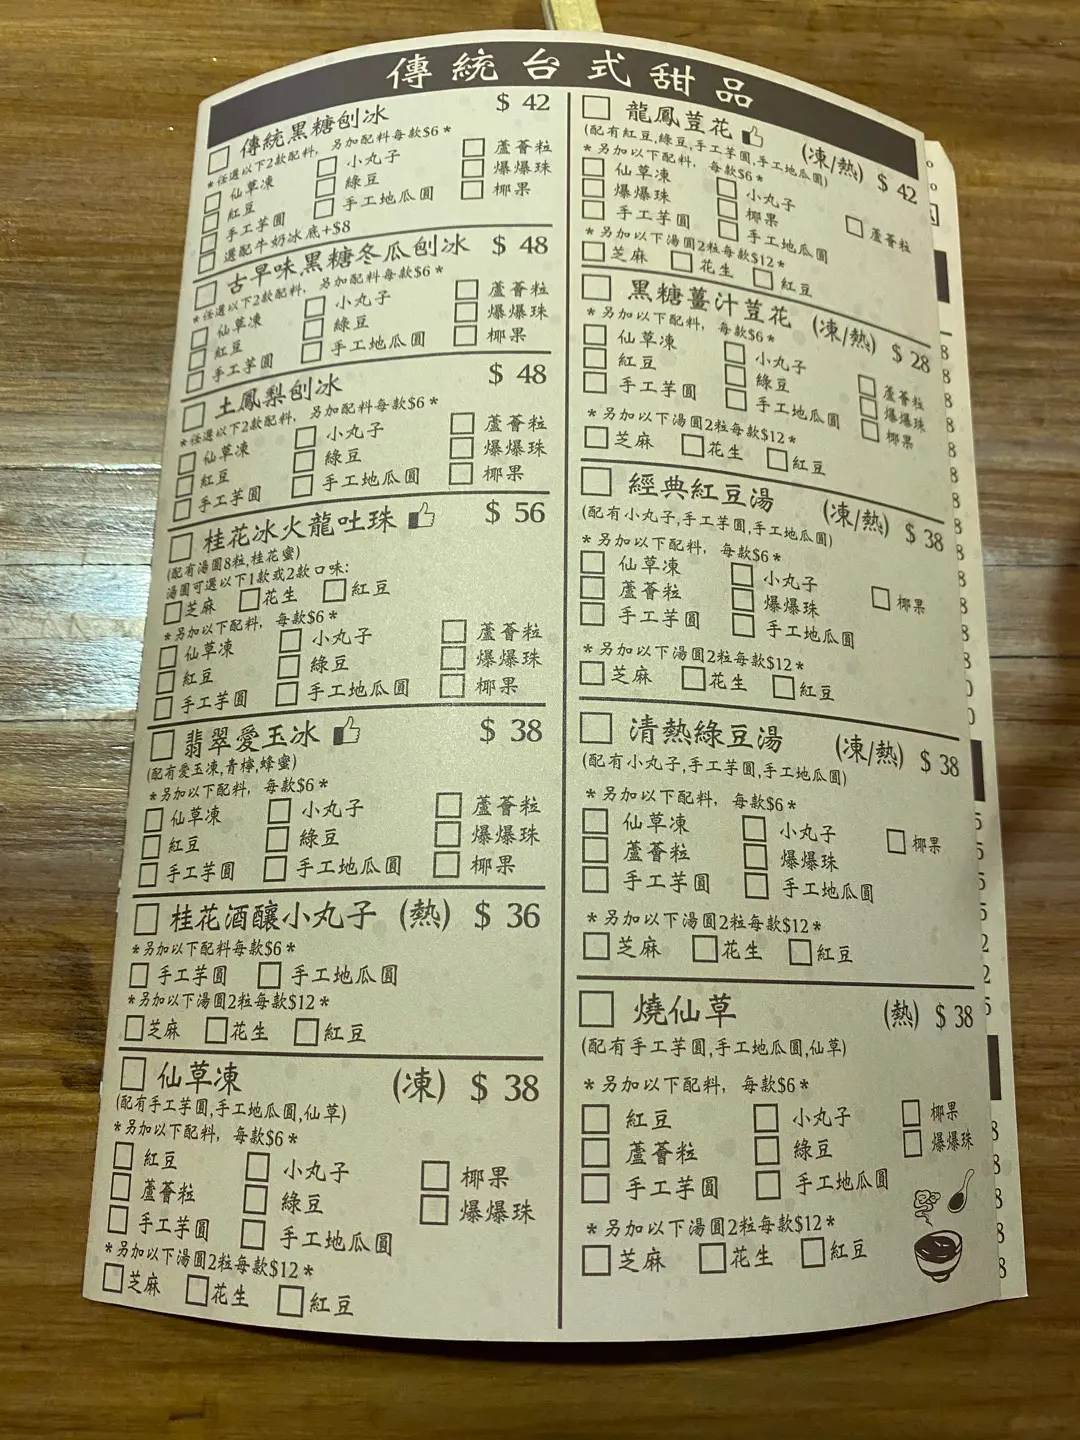 傳統台式甜品
□ 傳統黑糖刨冰 $ 42
*任選以下2款配料，另加配料每款$6*
□ 仙草凍 □ 小丸子 □ 蘆薈粒
□ 紅豆 □ 綠豆 □ 爆爆珠
□ 手工芋圓 □ 手工地瓜圓 □ 椰果
□ 選配牛奶冰底+$8
□ 古早味黑糖冬瓜刨冰 $ 48
*任選以下2款配料，另加配料每款$6*
□ 仙草凍 □ 小丸子 □ 蘆薈粒
□ 紅豆 □ 綠豆 □ 爆爆珠
□ 手工芋圓 □ 手工地瓜圓 □ 椰果
□ 土鳳梨刨冰 $ 48
*任選以下2款配料，另加配料每款$6*
□ 仙草凍 □ 小丸子 □ 蘆薈粒
□ 紅豆 □ 綠豆 □ 爆爆珠
□ 手工芋圓 □ 手工地瓜圓 □ 椰果
□ 桂花冰火龍吐珠 $ 56
(配有湯圓8粒,桂花蜜)
湯圓可選以下1款或2款口味:
□ 芝麻 □ 花生 □ 紅豆
*另加以下配料，每款$6*
□ 仙草凍 □ 小丸子 □ 蘆薈粒
□ 紅豆 □ 綠豆 □ 爆爆珠
□ 手工芋圓 □ 手工地瓜圓 □ 椰果
□ 翡翠愛玉冰 $ 38
(配有愛玉凍,青檸,蜂蜜)
*另加以下配料，每款$6*
□ 仙草凍 □ 小丸子 □ 蘆薈粒
□ 紅豆 □ 綠豆 □ 爆爆珠
□ 手工芋圓 □ 手工地瓜圓 □ 椰果
□ 桂花酒釀小丸子 (熱) $ 36
*另加以下配料每款$6*
□ 手工芋圓 □ 手工地瓜圓
*另加以下湯圓2粒每款$12*
□ 芝麻 □ 花生 □ 紅豆
□ 仙草凍 (凍) $ 38
(配有手工芋圓,手工地瓜圓,仙草)
*另加以下配料，每款$6*
□ 紅豆 □ 小丸子 □ 椰果
□ 蘆薈粒 □ 綠豆 □ 爆爆珠
□ 手工芋圓 □ 手工地瓜圓
*另加以下湯圓2粒每款$12*
□ 芝麻 □ 花生 □ 紅豆
□ 龍鳳荳花 (凍/熱) $ 42
(配有紅豆,綠豆,手工芋圓,手工地瓜圓)
*另加以下配料，每款$6*
□ 仙草凍 □ 小丸子
□ 爆爆珠 □ 椰果 □ 蘆薈粒
□ 手工芋圓 □ 手工地瓜圓
*另加以下湯圓2粒每款$12*
□ 芝麻 □ 花生 □ 紅豆
□ 黑糖薑汁荳花 (凍/熱) $ 28
*另加以下配料，每款$6*
□ 仙草凍 □ 小丸子 □ 蘆薈粒
□ 紅豆 □ 綠豆 □ 爆爆珠
□ 手工芋圓 □ 手工地瓜圓 □ 椰果
*另加以下湯圓2粒每款$12*
□ 芝麻 □ 花生 □ 紅豆
□ 經典紅豆湯 (凍/熱) $ 38
(配有小丸子,手工芋圓,手工地瓜圓)
*另加以下配料，每款$6*
□ 仙草凍 □ 小丸子
□ 蘆薈粒 □ 爆爆珠 □ 椰果
□ 手工芋圓 □ 手工地瓜圓
*另加以下湯圓2粒每款$12*
□ 芝麻 □ 花生 □ 紅豆
□ 清熱綠豆湯 (凍/熱) $ 38
(配有小丸子,手工芋圓,手工地瓜圓)
*另加以下配料，每款$6*
□ 仙草凍 □ 小丸子 □ 椰果
□ 蘆薈粒 □ 爆爆珠
□ 手工芋圓 □ 手工地瓜圓
*另加以下湯圓2粒每款$12*
□ 芝麻 □ 花生 □ 紅豆
□ 燒仙草 (熱) $ 38
(配有手工芋圓,手工地瓜圓,仙草)
*另加以下配料，每款$6*
□ 紅豆 □ 小丸子 □ 椰果
□ 蘆薈粒 □ 綠豆 □ 爆爆珠
□ 手工芋圓 □ 手工地瓜圓
*另加以下湯圓2粒每款$12*
□ 芝麻 □ 花生 □ 紅豆